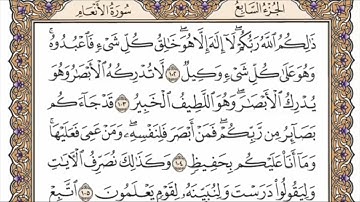 الجزء السابع
سورة الأنعام
ذَٰلِكُمُ ٱللَّهُ رَبُّكُمْ ۖ لَآ إِلَٰهَ إِلَّا هُوَ ۖ خَٰلِقُ كُلِّ شَىْءٍ فَٱعْبُدُوهُ ۚ
وَهُوَ عَلَىٰ كُلِّ شَىْءٍ وَكِيلٌ ١٠٢ لَّا تُدْرِكُهُ ٱلْأَبْصَٰرُ وَهُوَ
يُدْرِكُ ٱلْأَبْصَٰرَ ۖ وَهُوَ ٱللَّطِيفُ ٱلْخَبِيرُ ١٠٣ قَدْ جَآءَكُم
بَصَآئِرُ مِن رَّبِّكُمْ ۖ فَمَنْ أَبْصَرَ فَلِنَفْسِهِۦ ۖ وَمَنْ عَمِىَ فَعَلَيْهَا ۚ
وَمَآ أَنَا۠ عَلَيْكُم بِحَفِيظٍ ١٠٤ وَكَذَٰلِكَ نُصَرِّفُ ٱلْءَايَٰتِ
وَلِيَقُولُوا۟ دَرَسْتَ وَلِنُبَيِّنَهُۥ لِقَوْمٍ يَعْلَمُونَ ١٠٥ ٱتَّبِعْ